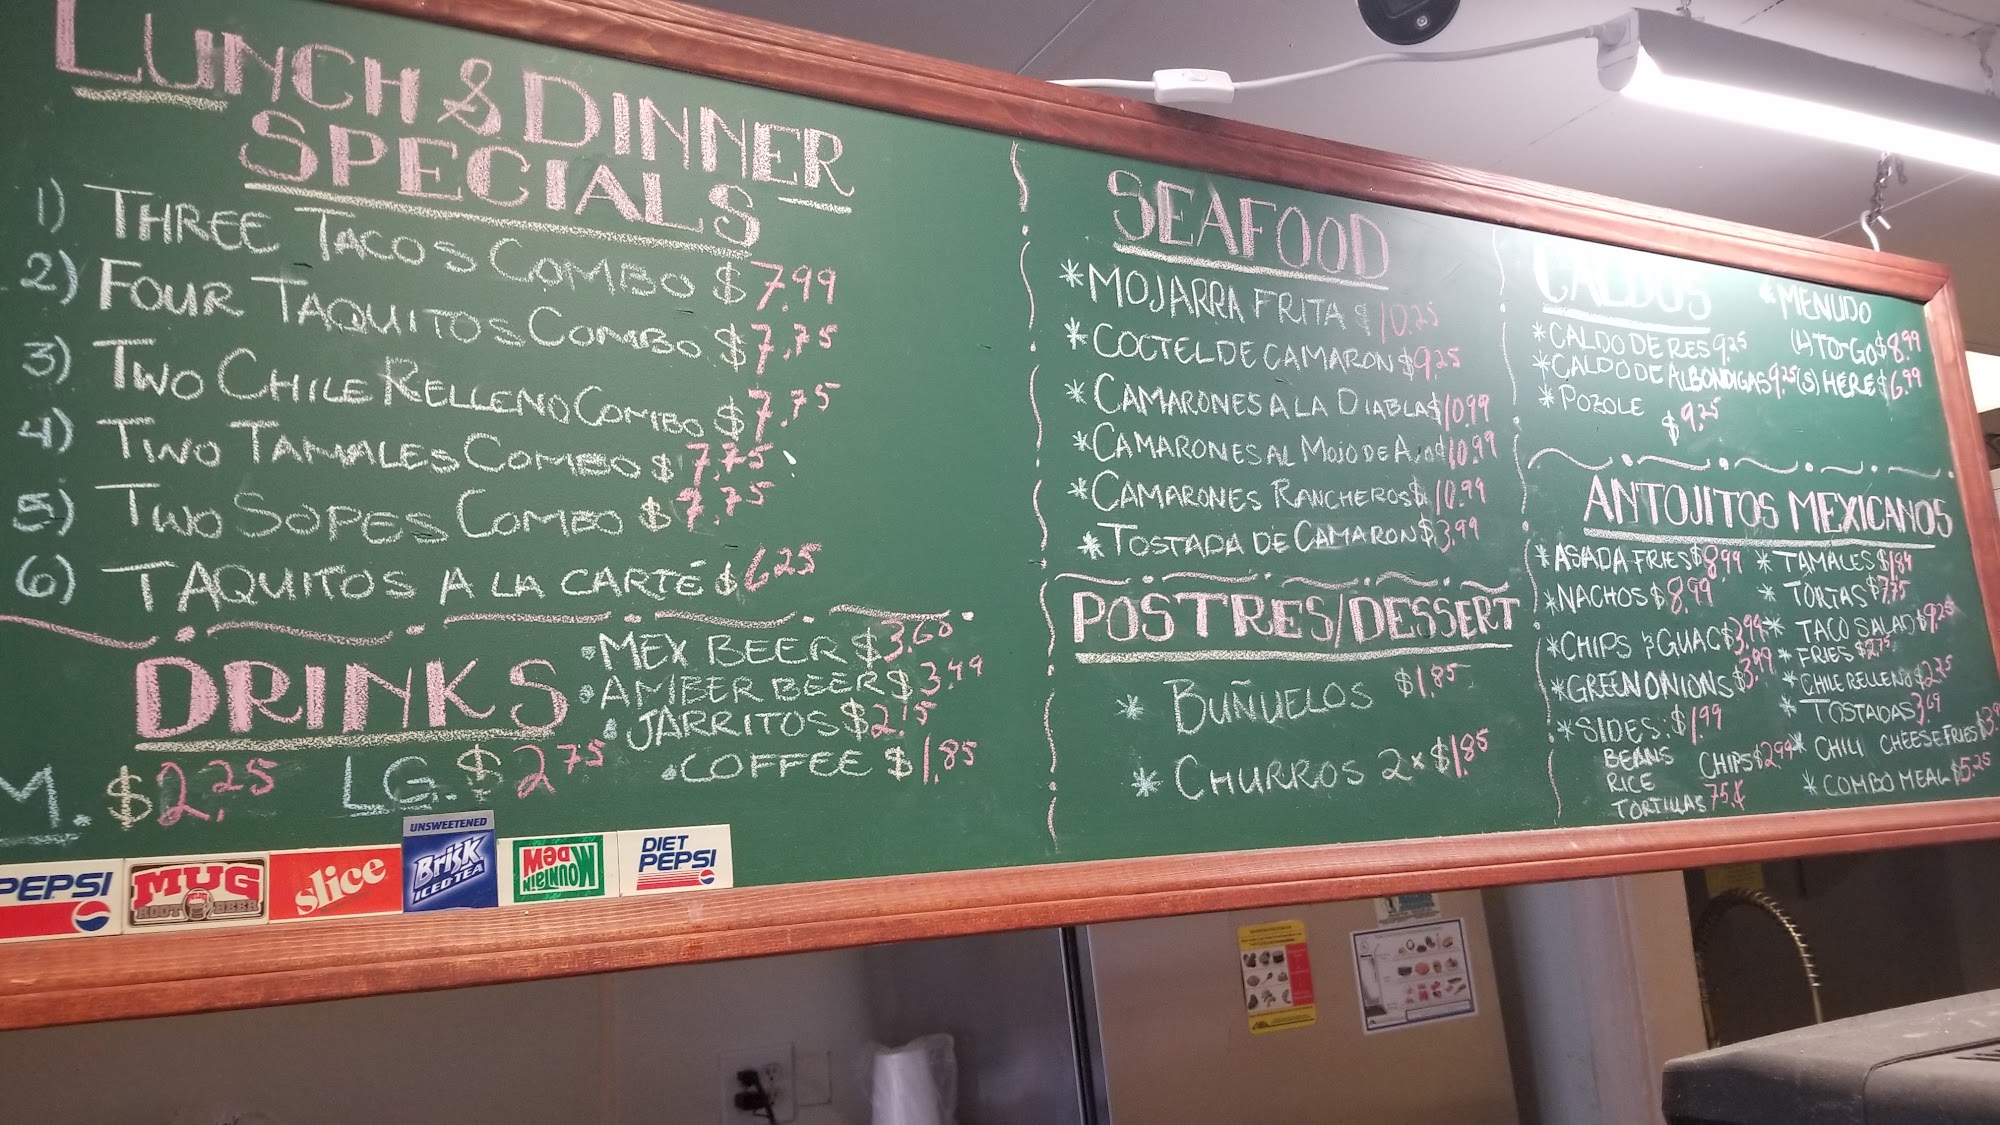 LUNCH & DINNER
SPECIALS
1) THREE TACOS COMBO $7.99
2) FOUR TAQUITOS COMBO $7.75
3) TWO CHILE RELLENO COMBO $7.75
4) TWO TAMALES COMBO $7.75
5) TWO SOPES COMBO $7.75
6) TAQUITOS A LA CARTÉ $6.25
DRINKS
M. $2.25 LG. $2.75
• MEX BEER $3.65
• AMBER BEER $3.99
• JARRITOS $2.15
• COFFEE $1.85
PEPSI
MUG
ROOT BEER
slice
UNSWEETENED
Brisk
ICED TEA
MOUNTAIN
DEW
DIET
PEPSI
SEAFOOD
* MOJARRA FRITA $10.25
* COCTEL DE CAMARON $9.25
* CAMARONES A LA DIABLA $10.99
* CAMARONES AL MOJO DE AJO $10.99
* CAMARONES RANCHEROS $10.99
* TOSTADA DE CAMARON $3.99
POSTRES/DESSERT
* BUÑUELOS $1.85
* CHURROS 2x$1.85
CALDOS
* CALDO DE RES 9.25
* CALDO DE ALBONDIGAS 9.25
* POZOLE $9.25
* MENUDO
(L) TO-GO $8.99
(S) HERE $6.99
ANTOJITOS MEXICANOS
* ASADA FRIES $8.99
* NACHOS $8.99
* CHIPS & GUAC $3.99
* GREEN ONIONS $3.99
* SIDES: $1.99
BEANS
RICE
TORTILLAS 75¢
CHIPS $2.99
* TAMALES $1.84
* TORTAS $7.75
* TACO SALAD $9.25
* FRIES $2.75
* CHILE RELLENO $2.25
* TOSTADAS 3.69
* CHILI CHEESE FRIES
* COMBO MEAL $5.25